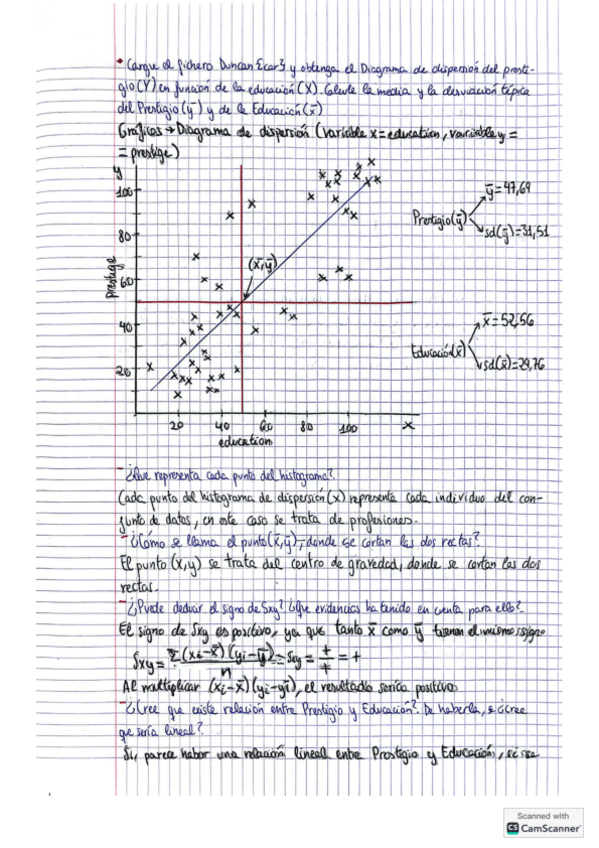 • Cargue el fichero Duncan {car} y obtenga el Diagrama de dispersión del presti-
gio (Y) en función de la educación (X). Calcule la media y la desviación típica
del Prestigio (ȳ) y de la Educación (x̄)
Gráficos → Diagrama de dispersión (variable x = education, variable y =
= prestige)
y
100
80
60
40
20
prestige
(x̄, ȳ)
20 40 60 80 100 x
education
Prestigio (ȳ)
ȳ = 47,69
sd(ȳ) = 31,51
Educación (x̄)
x̄ = 52,56
sd(x̄) = 29,76
- ¿Que representa cada punto del histograma?
Cada punto del histograma de dispersión (x) representa cada individuo del con-
junto de datos, en este caso se trata de profesiones.
- ¿Cómo se llama el punto (x̄, ȳ), donde se cortan las dos rectas?
El punto (x, y) se trata del centro de gravedad, donde se cortan las dos
rectas.
- ¿Puede deducir el signo de Sxy? ¿Que evidencias ha tenido en cuenta para ello?
El signo de Sxy es positivo, ya que tanto x̄ como ȳ tienen el mismo signo
Sxy = Σ(xi - x̄)(yi - ȳ) / n = Sxy = + / + = +
Al multiplicar (xi - x̄)(yi - ȳi), el resultado sería positivo
- ¿Cree que existe relación entre Prestigio y Educación? De haberla, ¿cree
que sería lineal?
Si, parece haber una relación lineal entre Prestigio y Educación,
Scanned with
CS CamScanner